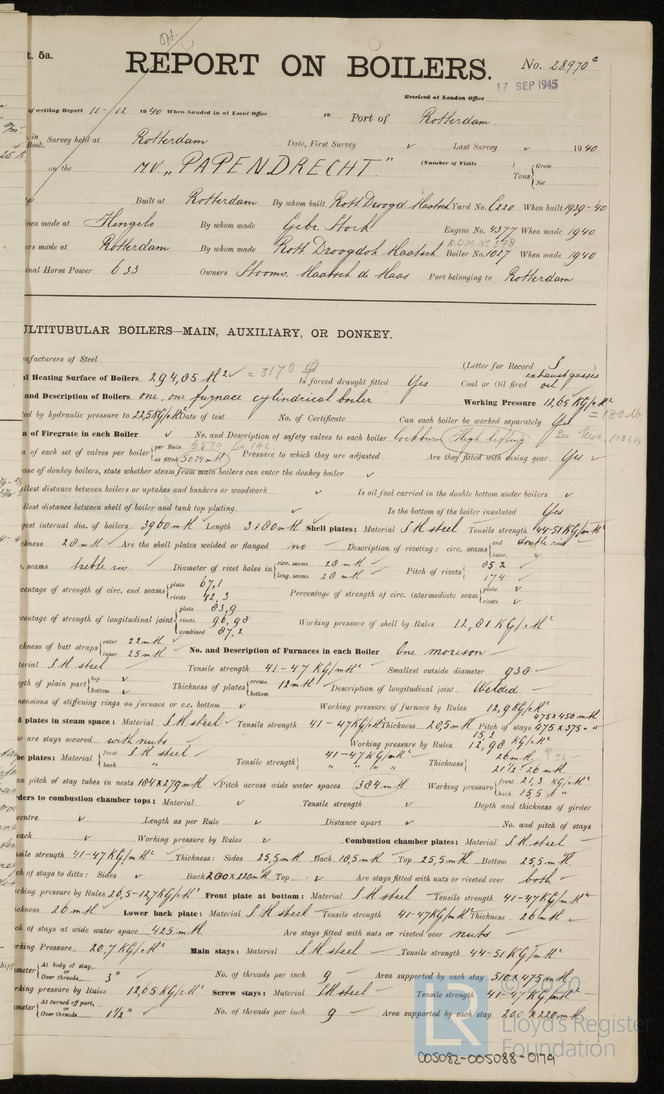 t. 5a.
REPORT ON BOILERS.
No. 28970c
17 SEP 1945
Received at London Office
of writing Report 11-12 1940 When handed in at Local Office 19 Port of Rotterdam
in Book. Survey held at Rotterdam Date, First Survey Last Survey 1940
on the MV „PAPENDRECHT" (Number of Visits ) Tons { Gross Net
Built at Rotterdam By whom built Rott Droogd Maatsch Yard No. When built 1939-40
nes made at Hengelo By whom made Gebr. Stork Engine No. 4377 When made 1940
R.D.M. No.
rs made at Rotterdam By whom made Rott. Droogdok Maatsch Boiler No. 1027 When made 1940
inal Horse Power 633 Owners Stoomv. Maatsch de Maas Port belonging to Rotterdam
ULTITUBULAR BOILERS—MAIN, AUXILIARY, OR DONKEY.
ufacturers of Steel
(Letter for Record S
exhaust gasses
l Heating Surface of Boilers 294,85 M² = 3170 Is forced draught fitted Yes Coal or Oil fired oil
and Description of Boilers one, one furnace cylindrical boiler Working Pressure 12,65 KG/cM²
= 180 lb
ed by hydraulic pressure to 22,5 KG/cM² Date of test No. of Certificate Can each boiler be worked separately Yes
a of Firegrate in each Boiler No. and Description of safety valves to each boiler Cockburn High lifting
a of each set of valves per boiler { per Rule as fitted Pressure to which they are adjusted Are they fitted with easing gear Yes
ase of donkey boilers, state whether steam from main boilers can enter the donkey boiler
llest distance between boilers or uptakes and bunkers or woodwork Is oil fuel carried in the double bottom under boilers
llest distance between shell of boiler and tank top plating Is the bottom of the boiler insulated Yes
gest internal dia. of boilers 3960 mM Length 3180 mM Shell plates: Material S.M steel Tensile strength 44-51 KG/mM²
kness 28 mM Are the shell plates welded or flanged no Description of riveting: circ. seams { end double riv inter.
. seams treble riv. Diameter of rivet holes in { circ. seams 28 mM long. seams 28 mM Pitch of rivets { 85.2 174
centage of strength of circ. end seams { plate 67,1 rivets 42,3 Percentage of strength of circ. intermediate seam { plate rivets
centage of strength of longitudinal joint { plate 83,9 rivets 96,98 combined 87,2 Working pressure of shell by Rules 12,81 KG/cM²
ckness of butt straps { outer 22 mM inner 25 mM No. and Description of Furnaces in each Boiler One morison
terial S.M steel Tensile strength 41-47 KG/mM² Smallest outside diameter 930
gth of plain part { top bottom Thickness of plates { crown bottom 12 mM Description of longitudinal joint Welded
mensions of stiffening rings on furnace or c.c. bottom Working pressure of furnace by Rules 12,9 KG/cM²
475 x 450 mM
d plates in steam space: Material S.M steel Tensile strength 41-47 KG/mM² Thickness 20,5 mM Pitch of stays 475 x 375
15,2
w are stays secured with nuts Working pressure by Rules 12,98 KG/cM²
be plates: Material { front S.M steel back " Tensile strength { 41-47 KG/mM² " " " Thickness { 26 mM 21½-26 mM
an pitch of stay tubes in nests 184 x 279 mM Pitch across wide water spaces 384 mM Working pressure { front 21,3 KG/cM² back 15,5 " "
ders to combustion chamber tops: Material Tensile strength Depth and thickness of girder
centre Length as per Rule Distance apart No. and pitch of stays
each Working pressure by Rules Combustion chamber plates: Material S.M steel
sile strength 41-47 KG/mM² Thickness: Sides 25,5 mM Back 18,5 mM Top 25,5 mM Bottom 25,5 mM
ch of stays to ditto: Sides Back 200 x 220 mM Top Are stays fitted with nuts or riveted over both
rking pressure by Rules 20,5-12,7 KG/cM² Front plate at bottom: Material S.M steel Tensile strength 41-47 KG/mM²
ickness 26 mM Lower back plate: Material S.M steel Tensile strength 41-47 KG/mM² Thickness 26 mM
ch of stays at wide water space 425 mM Are stays fitted with nuts or riveted over nuts
rking Pressure 20.7 KG/cM² Main stays: Material S.M steel Tensile strength 44-51 KG/mM²
meter { At body of stay, or Over threads 3" No. of threads per inch 9 Area supported by each stay 510 x 475 mM
rking pressure by Rules 12,65 KG/cM² Screw stays: Material S.M steel Tensile strength 41-47 KG/mM²
meter { At turned off part, or Over threads 1½" No. of threads per inch 9 Area supported by each stay 200 x 220 mM
© 2020
LR
Lloyd's Register
Foundation
005082-005088-0179